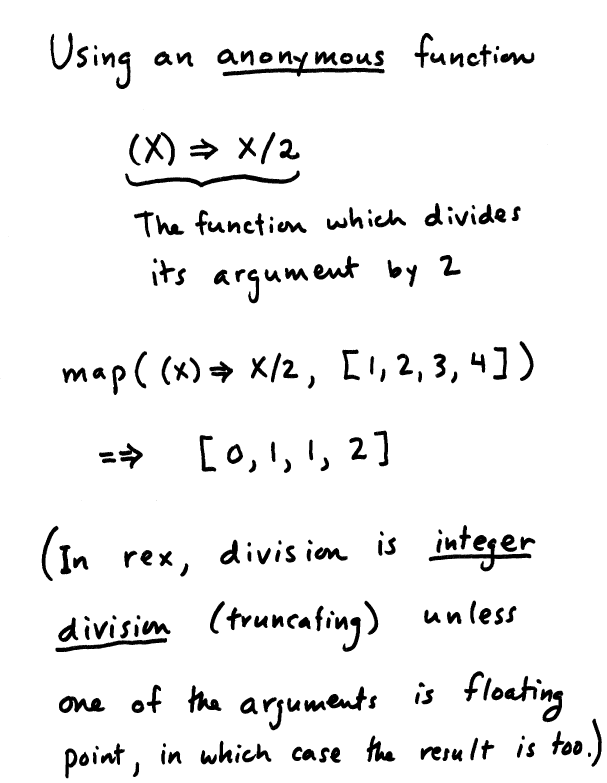 Using an anonymous function
(X) ⇒ X/2
The function which divides
its argument by 2
map( (X) ⇒ X/2, [1, 2, 3, 4])
==> [0, 1, 1, 2]
(In rex, division is integer
division (truncating) unless
one of the arguments is floating
point, in which case the result is too.)